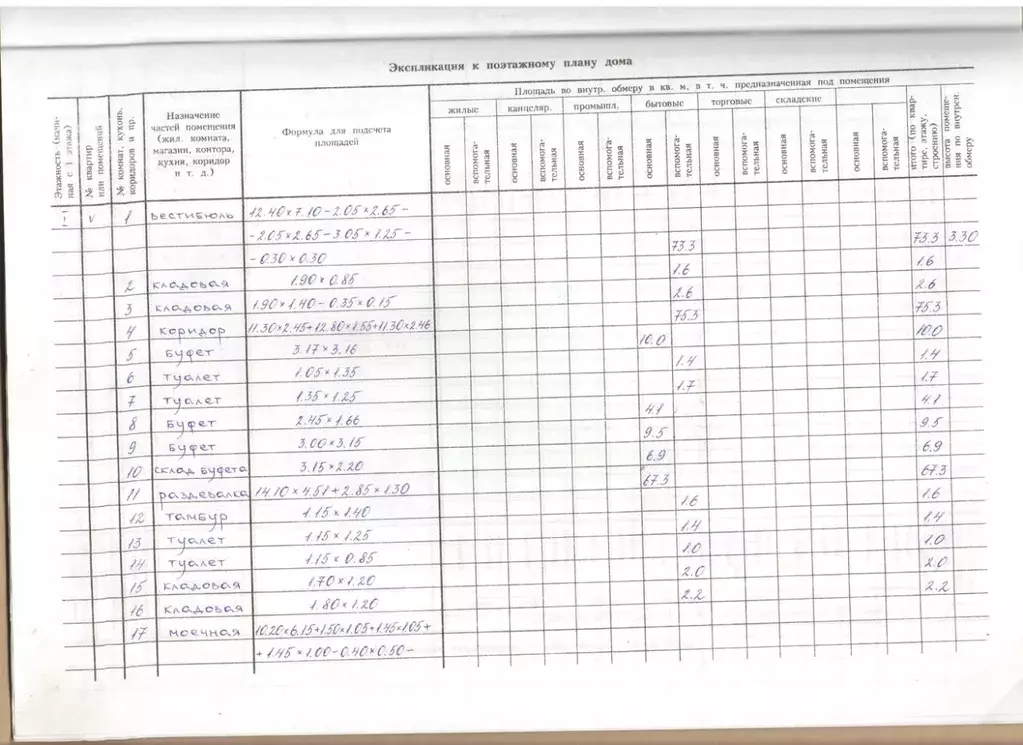 Экспликация к поэтажному плану дома
Этажность (начиная с 1 этажа)
№ квартир или помещений
№ комнат, кухонь, коридоров и пр.
Назначение
частей помещения
(жил. комната,
магазин, контора,
кухня, коридор
и т. д.)
Формула для подсчета
площадей
Площадь во внутр. обмеру в кв. м, в т. ч. предназначенная под помещения
жилые канцеляр. промышл. бытовые торговые складские
основная вспомога-тельная основная вспомога-тельная основная вспомога-тельная основная вспомога-тельная основная вспомога-тельная основная вспомога-тельная основная вспомога-тельная
итого (по квартире, этажу, строению)
высота помещения по внутрен. обмеру
V 1 вестибюль 12.40×7.10-2.05×2.65-
-2.05×2.65-3.05×1.25- 73.3 73.3 3.30
-0.30×0.30
2 кладовая 1.90×0.85 1.6 1.6
3 кладовая 1.90×1.40-0.35×0.15 2.6 2.6
4 коридор 11.30×2.45+12.80×1.55+11.30×2.46 75.3 75.3
5 буфет 3.17×3.16 10.0 10.0
6 туалет 1.05×1.35 1.4 1.4
7 туалет 1.35×1.25 1.7 1.7
8 буфет 2.45×1.66 4.1 4.1
9 буфет 3.00×3.15 9.5 9.5
10 склад буфета 3.15×2.20 6.9 6.9
11 раздевалка 14.10×4.51+2.85×1.30 67.3 67.3
12 тамбур 1.15×1.40 1.6 1.6
13 туалет 1.15×1.25 1.4 1.4
14 туалет 1.15×0.85 1.0 1.0
15 кладовая 1.70×1.20 2.0 2.0
16 кладовая 1.80×1.20 2.2 2.2
17 моечная 10.20×6.15+1.50×1.05+1.45×1.05+
+1.45×1.00-0.40×0.50-